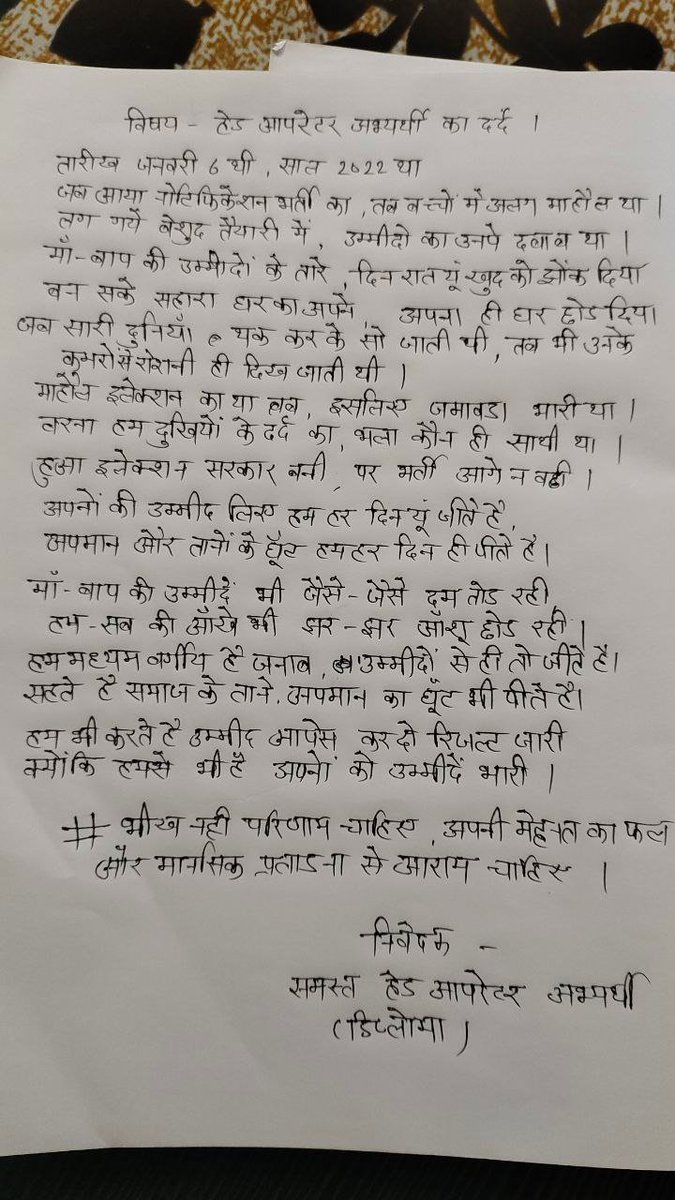 विषय - हेड आपरेटर अभ्यर्थी का दर्द ।
तारीख जनवरी 6 थी, साल 2022 था
जब आया नोटिफिकेशन भर्ती का, तब बच्चों मे अलग माहौल था ।
लग गये बेशुद तैयारी में, उम्मीदो का उनपे दबाव था ।
माँ-बाप की उम्मीदों के तारे, दिन रात यूं खुद को झोंक दिया
बन सके सहारा घर का अपने, अपना ही घर छोड दिया।
जब सारी दुनियाँ थक करके सो जाती थी, तब भी उनके
कमरों से रोशनी ही दिख जाती थी ।
माहौल इलेक्शन का था तब, इसलिए जमावडा भारी था ।
वरना हम दुखियों के दर्द का, भला कौन ही साथी था ।
हुआ इलेक्शन सरकार बनी, पर भर्ती आगे न बढी ।
अपनों की उम्मीद लिए हम हर दिन यूं जीते है,
अपमान और तानों के घूँट हम हर दिन ही पीते है।
माँ-बाप की उम्मीदें भी जैसे-जैसे दम तोड रही,
हम-सब की आँखे भी झर-झर आँशू छोड रही।
हम मध्यम वर्गीय है जनाब, उम्मीदों से ही तो जीते है।
सहते है समाज के ताने, अपमान का घूँट भी पीते है।
हम भी करते है उम्मीद आपसे कर दो रिजल्ट जारी
क्योंकि हमसे भी है अपनों को उम्मीदें भारी ।
# भीख नही परिणाम चाहिए, अपनी मेहनत का फल
और मानसिक प्रताडना से आराम चाहिए ।
निवेदक -
समस्त हेड आपरेटर अभ्यर्थी
(डिप्लोमा)